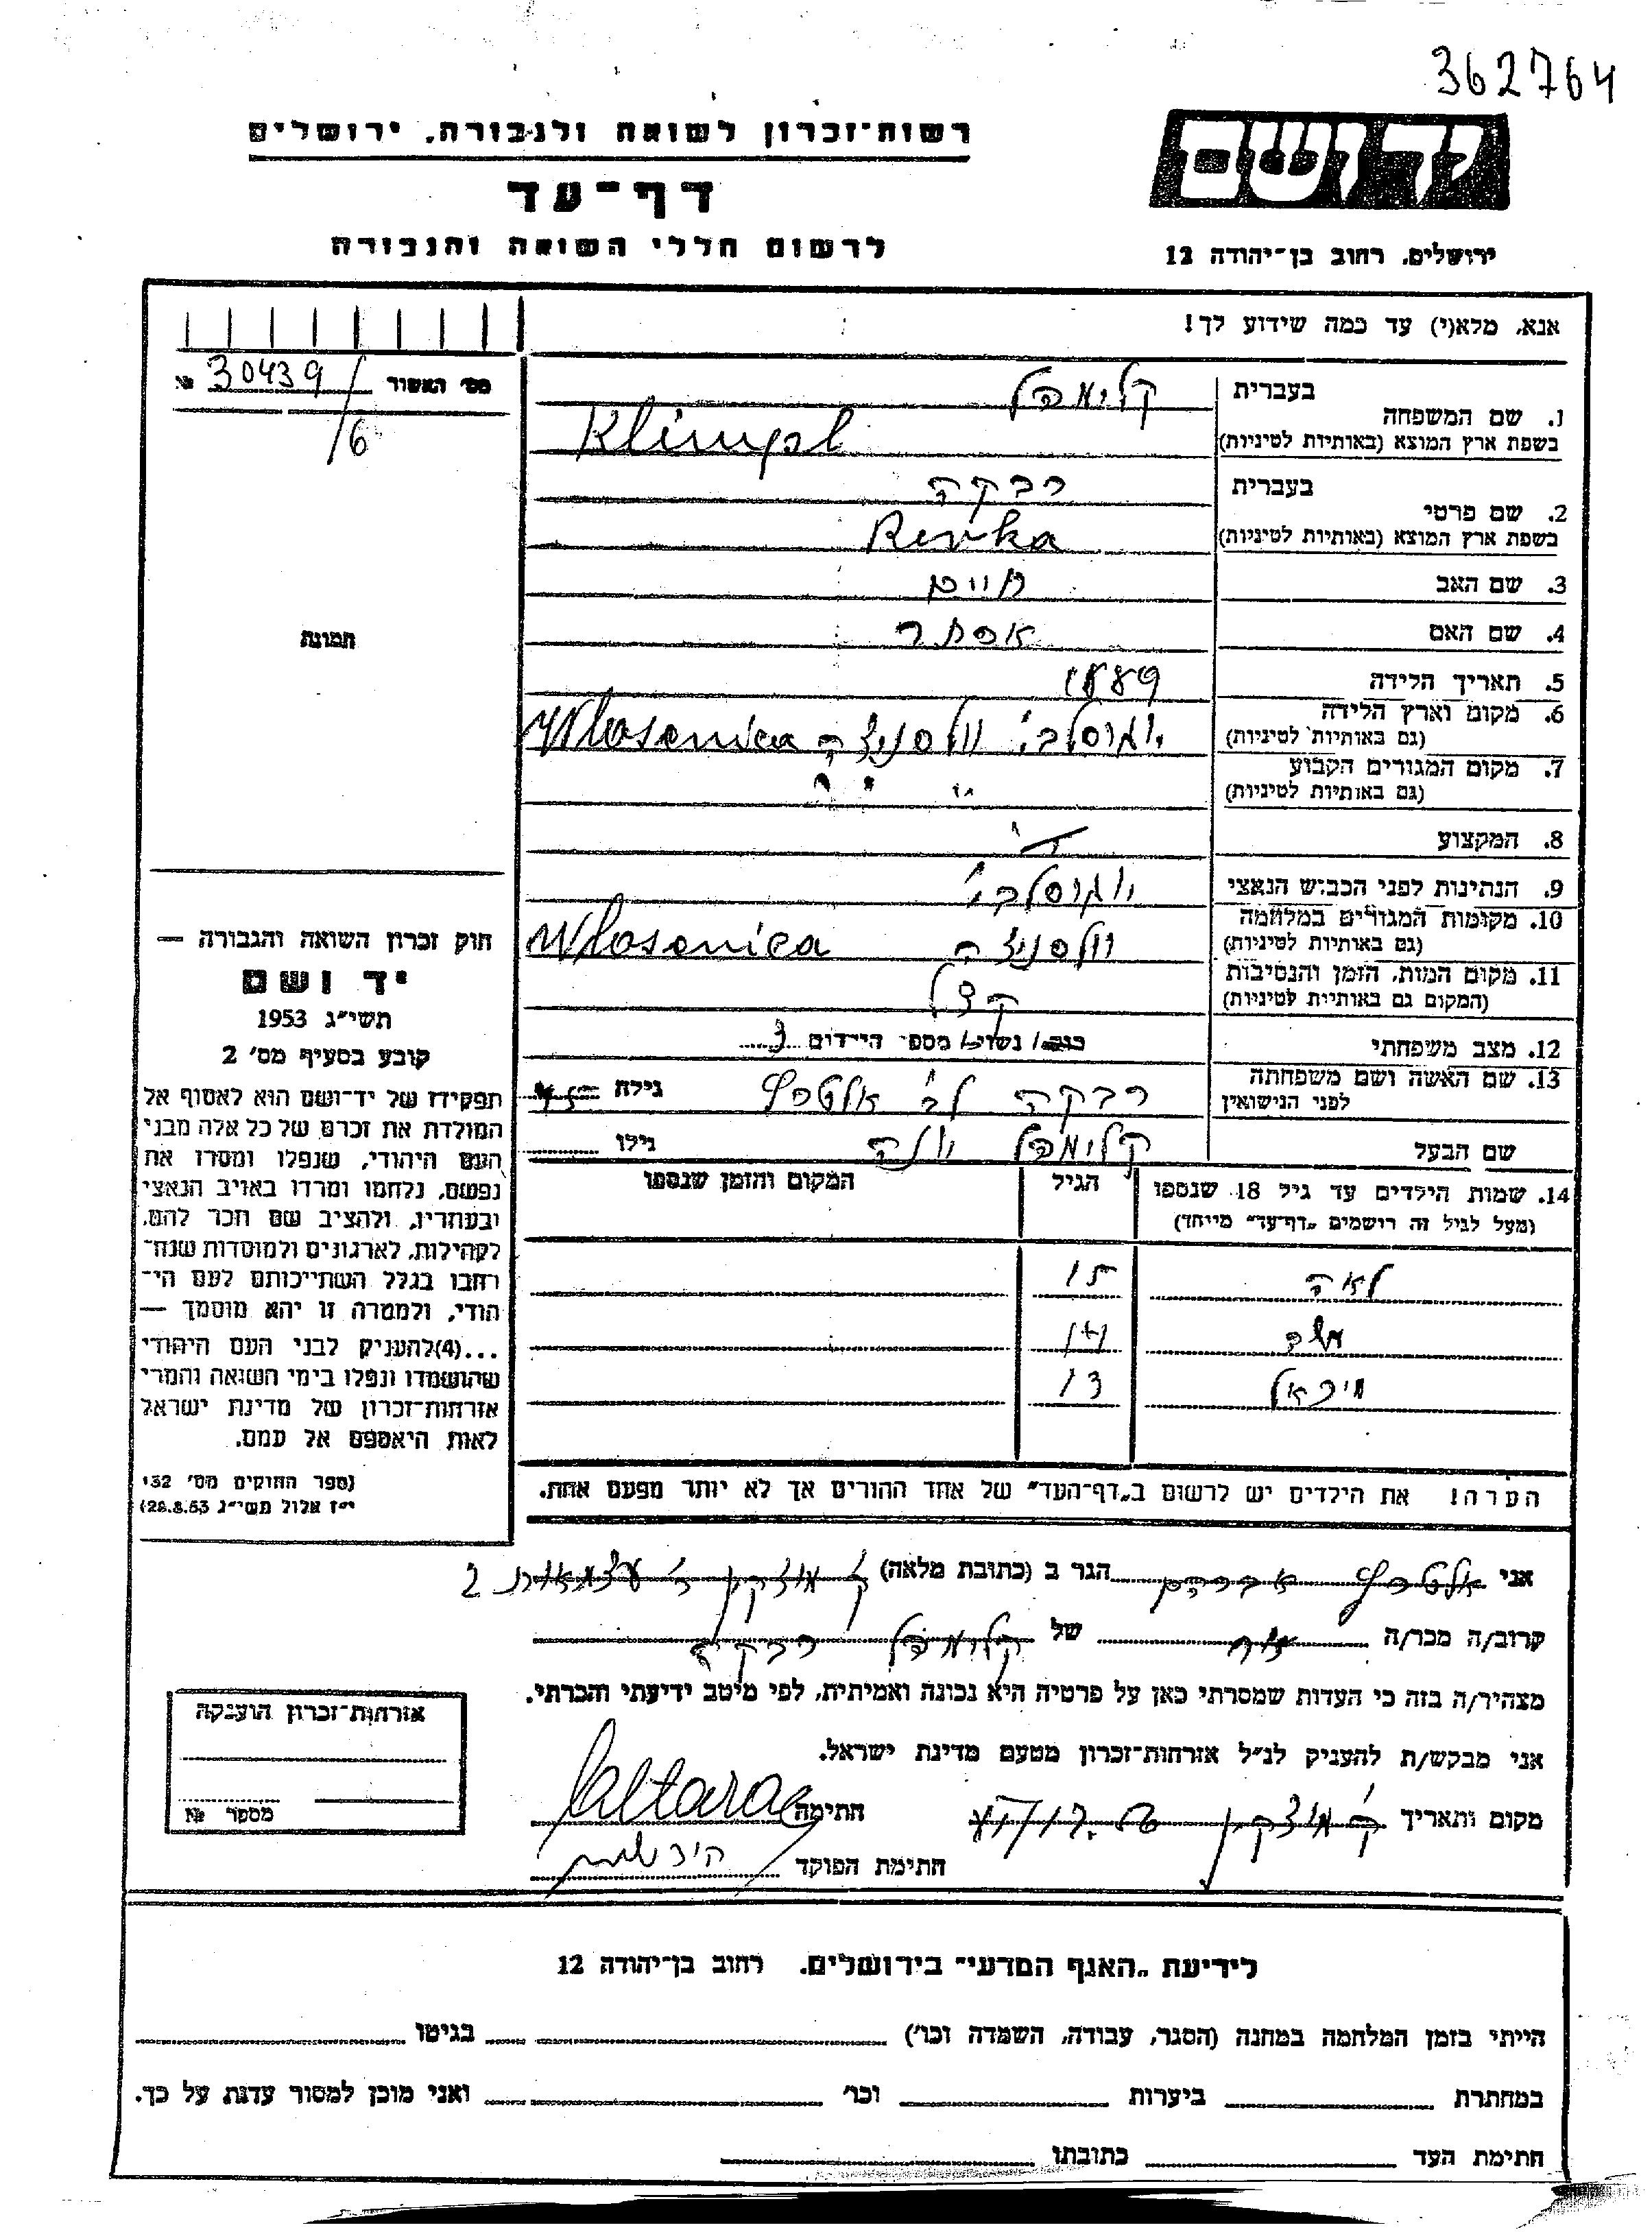 362764
יד ושם
רשות־זכרון לשואה ולגבורה, ירושלים
דף־עד
לרשום חללי השואה והגבורה
ירושלים, רחוב בן־יהודה 12
אנא, מלא(י) עד כמה שידוע לך!
מס׳ האשור 30439 №
/6
תמונה
1. שם המשפחה
בעברית קלימפל
בשפת ארץ המוצא (באותיות לטיניות) Klimpel
2. שם פרטי
בעברית רבקה
בשפת ארץ המוצא (באותיות לטיניות) Rewka
3. שם האב חיים
4. שם האם אסתר
5. תאריך הלידה 1889
6. מקום וארץ הלידה יוגוסלבי׳ ולסניצה Wlasenica
(גם באותיות לטיניות)
7. מקום המגורים הקבוע " " "
(גם באותיות לטיניות)
8. המקצוע
9. הנתינות לפני הכבוש הנאצי יוגוסלבי׳
10. מקומות המגורים במלחמה ולסניצה Wlasenica
(גם באותיות לטיניות)
11. מקום המות, הזמן והנסיבות
(המקום גם באותיות לטיניות)
12. מצב משפחתי רווק/ נשוי/ מספר הילדים 3
13. שם האשה ושם משפחתה רבקה לב׳ אלטרץ גילה 45
לפני הנישואין
שם הבעל קלימפל יונה גילו
14. שמות הילדים עד גיל 18 שנספו הגיל המקום והזמן שנספו
(מעל לגיל זה רושמים „דף־עד" מיוחד)
לאה 15
משה 14
מיכאל 13
הערה! את הילדים יש לרשום ב„דף־העד" של אחד ההורים אך לא יותר מפעם אחת.
חוק זכרון השואה והגבורה —
יד ושם
תשי״ג 1953
קובע בסעיף מס׳ 2
תפקידו של יד־ושם הוא לאסוף אל
המולדת את זכרם של כל אלה מבני
העם היהודי, שנפלו ומסרו את
נפשם, נלחמו ומרדו באויב הנאצי
ובעוזריו, ולהציב שם וזכר להם,
לקהילות, לארגונים ולמוסדות שנח־
רבו בגלל השתייכותם לעם הי־
הודי, ולמטרה זו יהא מוסמך —
...(4)להעניק לבני העם היהודי
שהושמדו ונפלו בימי השואה והמרי
אזרחות־זכרון של מדינת ישראל
לאות היאספם אל עמם.
(ספר החוקים מס׳ 132
י״ז אלול תשי״ג 28.8.53)
אני אלטרץ אברהם הגר ב (כתובת מלאה) ק׳ מוצקין ר׳ עצמאות 2
קרוב/ה מכר/ה אח של קלימפל רבקה
מצהיר/ה בזה כי העדות שמסרתי כאן על פרטיה היא נכונה ואמיתית, לפי מיטב ידיעתי והכרתי.
אני מבקש/ת להעניק לנ״ל אזרחות־זכרון מטעם מדינת ישראל.
מקום ותאריך ק׳ מוצקין חתימה Jaltarac
חתימת הפוקד
אזרחות־זכרון הוענקה
מספר №
לידיעת „האגף המדעי" בירושלים, רחוב בן־יהודה 12
הייתי בזמן המלחמה במחנה (הסגר, עבודה, השמדה וכר׳) בגיטו
במחתרת ביערות וכר׳ ואני מוכן למסור עדות על כך.
חתימת העד כתובתו